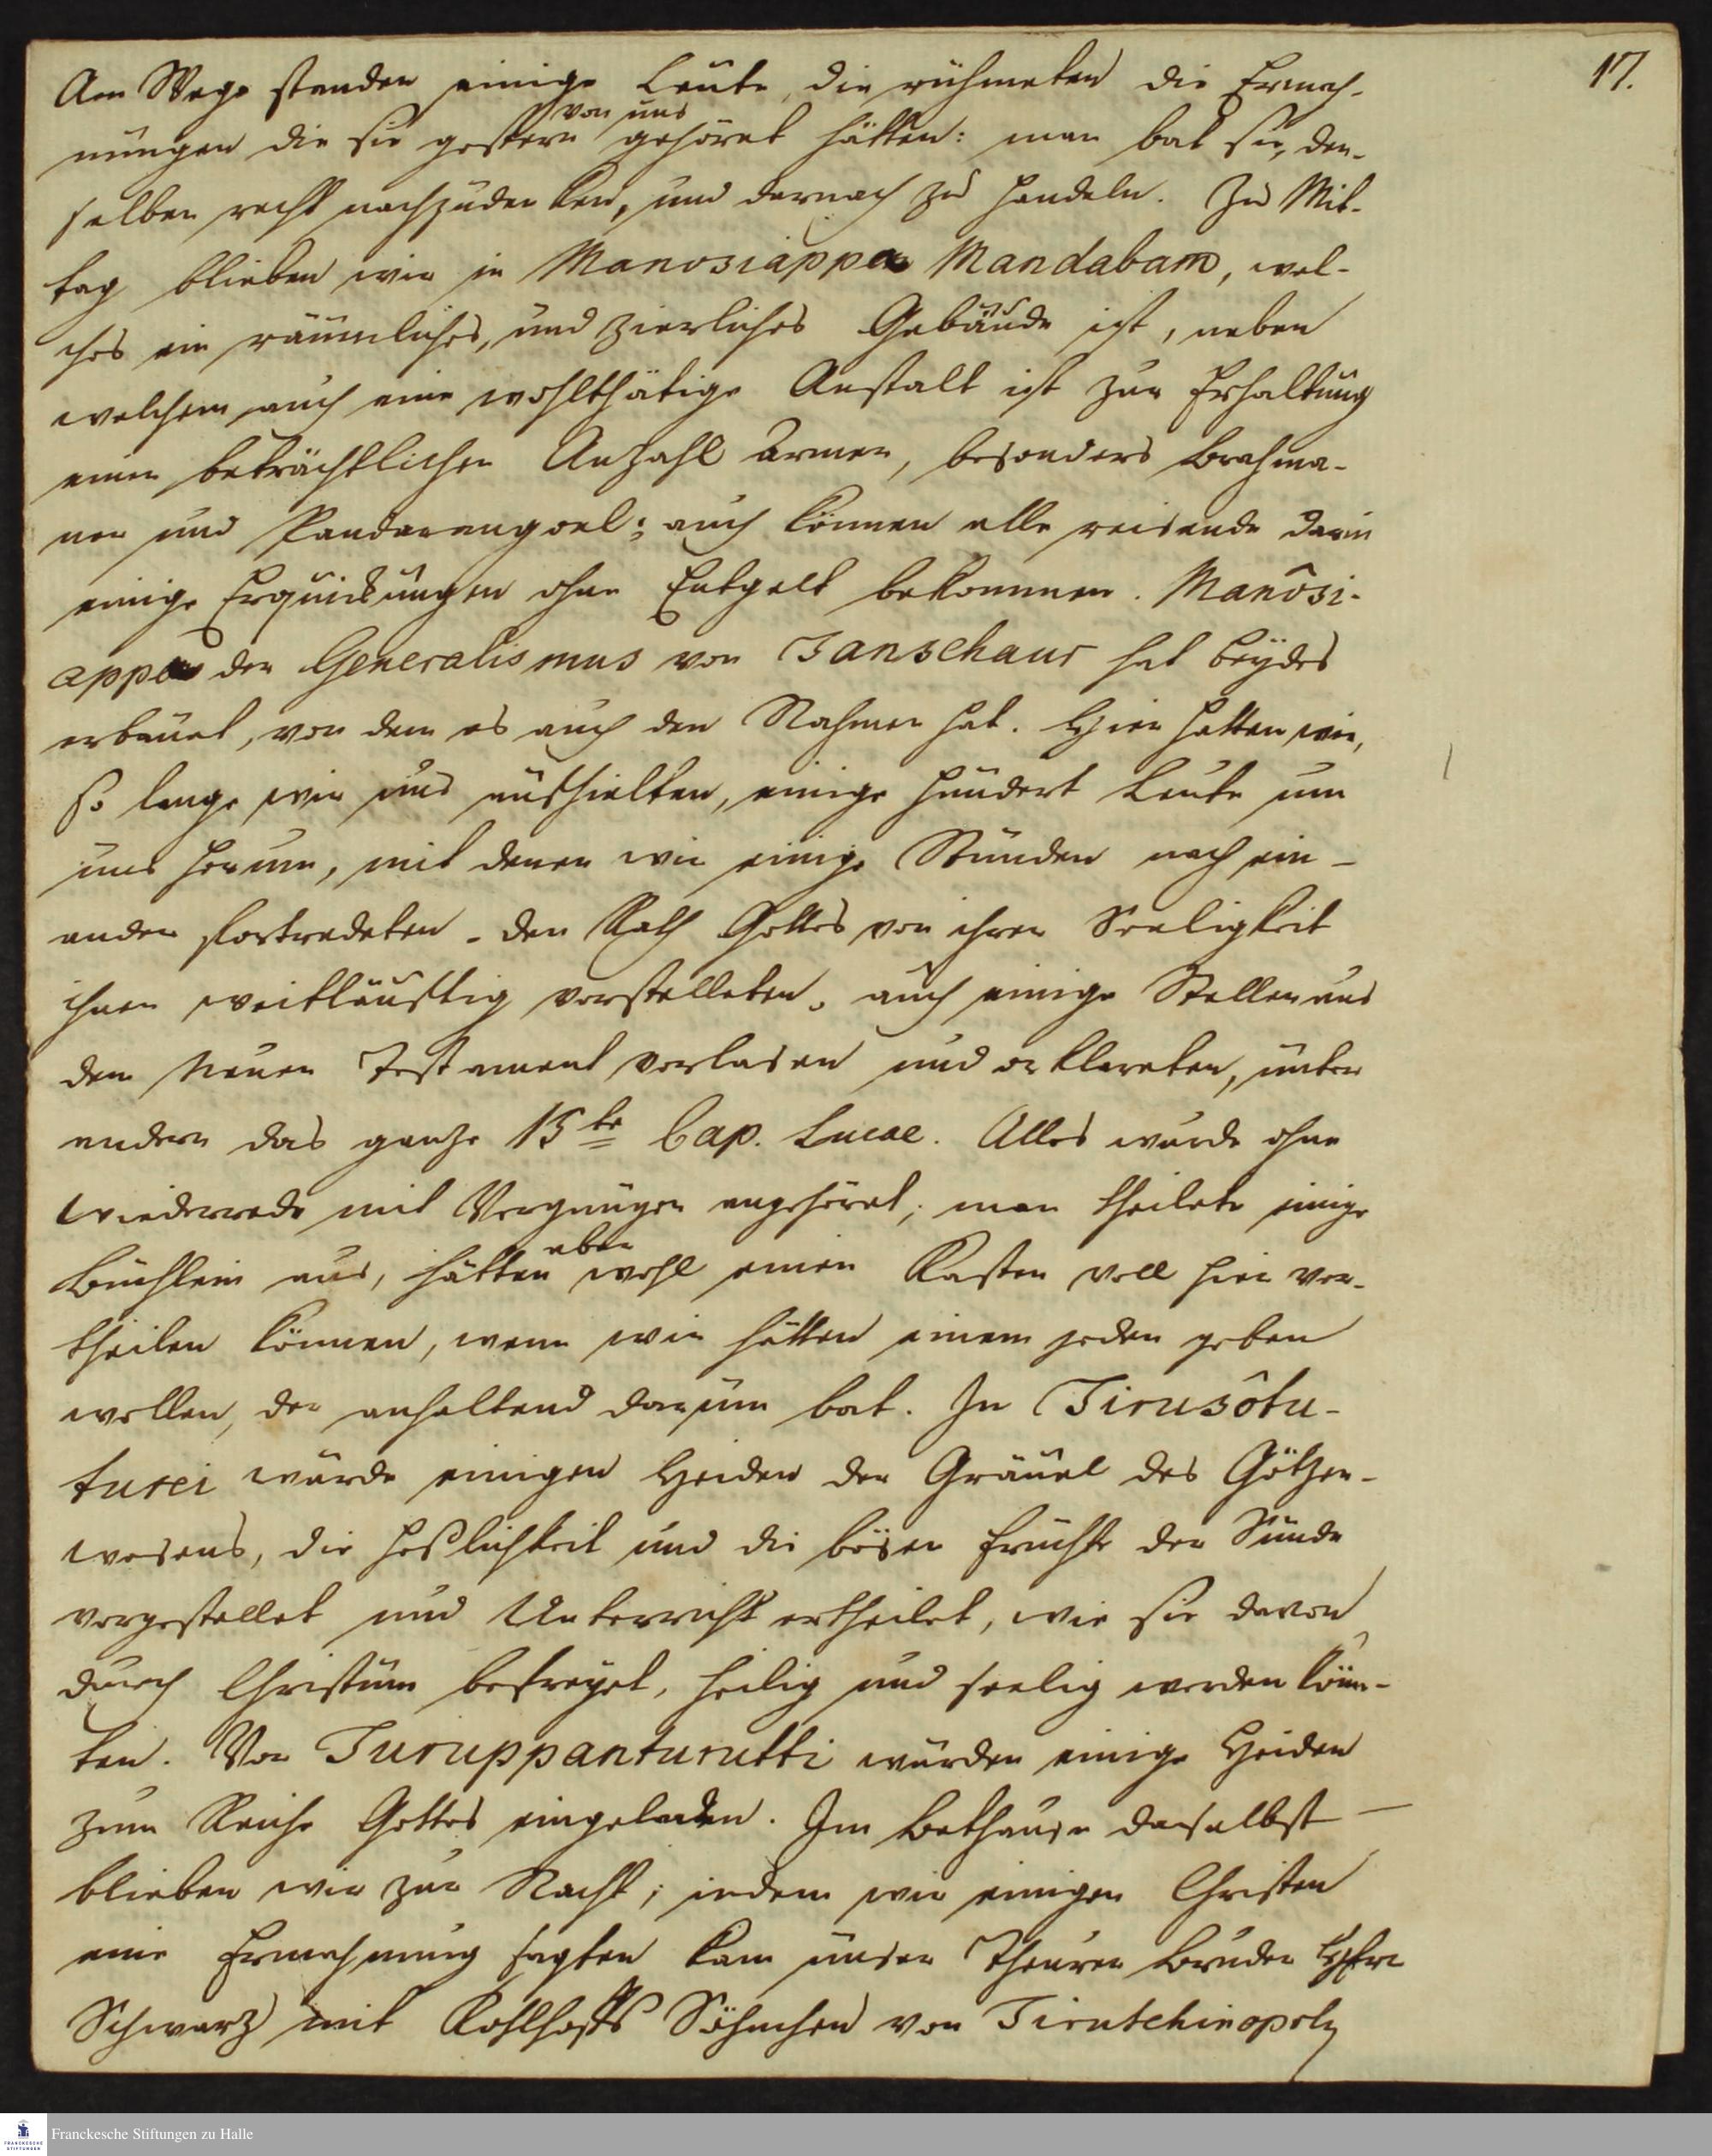 17.
Am Wege standen einige Leute, die rühmeten die Ermah-
nungen die sie gestern von uns gehöret hätten: man bat sie, den-
selben recht nachzudenken, und darnach zu handeln. Zu Mit-
tag blieben wir in Manosiappa Mandabam, wel-
ches ein räumliches, und zierliches Gebäude ist, neben
welchem auch eine wohlthätige Anstalt ist zur Erhaltung
einer beträchtlichen Anzahl Armer, besonders Brahma-
ner und Pandarangoel; auch können alle reisende darin
einige Erquickungen ohne Entgelt bekommen. Manôsi-
appa der Generalismus von Tanschaur hat beydes
erbauet, von dem es auch den Nahmen hat. Hier hatten wir,
so lange wir uns aufhielten, einige hundert Leute um
uns herum, mit denen wir einige Stunden nach ein-
ander fortredeten. den Rath Gottes von ihrer Seeligkeit
ihnen weitläuftig vorstelleten, auch einige Stellen aus
dem Neuen Testament vorlasen und erklareten, unter
andern das ganze 15te Cap. Lucae. Alles wurde ohne
Wiederrede mit Vergnügen angehöret; man theilete einige
Büchlein aus, hätten aber wohl einen Kasten voll hier ver-
theilen können, wenn wir hätten einem jeden geben
wollen, der anhaltend darum bat. In Tirusôtu-
turei wurde einigen Heiden der Gräuel des Götzen-
wesens, die Heßlichkeit und die bösen Früchte der Sünde
vorgestellet und Unterricht ertheilet, wie sie davon
durch Christum befreyet, heilig und seelig werden könn-
ten. Vor Turuppanturutti wurden einige Heiden
zum Reiche Gottes eingeladen. Im Bethause daselbst
blieben wir zur Nacht; indem wir einigen Christen
eine Ermahnung sagten kam unser Theurer Bruder Herr
Schwarz mit Kohlhoffs Söhnchen von Tirutschinopoly
Franckesche Stiftungen zu Halle